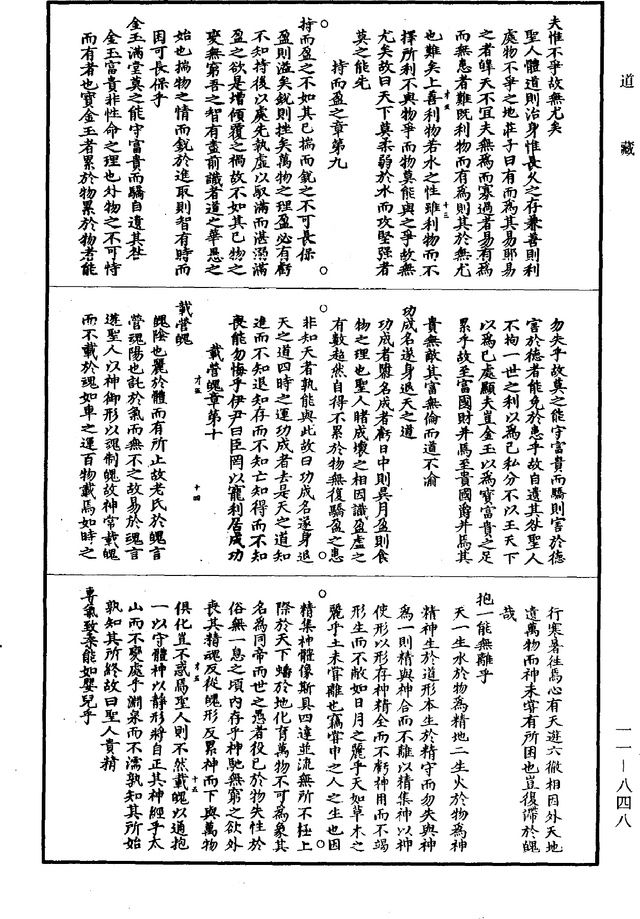 道藏
夫惟不爭故無尤矣
聖人體道則治身惟長久之存兼善則利
處物不爭之地莊子曰有而為其易耶易
之者皞天不宜夫無為而寡過者易有為
而無患者難既利物而有為則其於無尤
也難矣上善利物若水之性雖利物而不
擇所利不與物爭而物莫能與之爭故無
尤矣故曰天下莫柔弱於水而攻堅強者
莫之能先
持而盈之章第九
持而盈之不如其已揣而銳之不可長保
盈則溢矣銳則挫矣萬物之理盈必有虧
不知持後以處先執虛以馭滿而湛溺滿
盈之欲是增傾覆之禍故不如其已物之
變無窮吾之智有盡前識者道之華愚之
始也揣物之情而銳於進取則智有時而
困可長保乎
金玉滿堂莫之能守富貴而驕自遺其咎
金玉富貴非性命之理也外物之不可恃
而有者也寶金玉者累於物累於物者能
勿失乎故莫之能守富貴而驕則害於德
害於德者能免於患乎故自遺其咎聖人
不拘一世之利以為己私分不以王天下
以為己處顯夫豈金玉以為寶富貴之足
累乎故至富國財并焉至貴國爵并焉其
貴無敵其富無倫而道不渝
功成名遂身退天之道
功成者隳名成者虧日中則昃月盈則食
物之理也聖人睹成壞之相因識盈虛之
有數超然自得不累於物無復驕盈之患
非知天者孰能與此故曰功成名遂身退
天之道四時之運功成者去是天之道知
進而不知退知存而不知亡知得而不知
喪能勿悔乎伊尹曰臣罔以寵利居成功
載營魄章第十
載營魄
魄陰也麗於體而有所止故老氏於魄言
營魂陽也託於氣而無不之故易於魂言
遊聖人以神御形以魂制魄故神常載魄
而不載於魄如車之運百物載焉如時之
行寒暑往焉心有天遊六徹相因外天地
遺萬物而神未嘗有所困也豈復滯於魄
哉
抱一能無離乎
天一生水於物為精地二生火於物為神
精神生於道形本生於精守而勿失與神
為一則精與神合而不離以精集神以神
使形以形存神精全而不虧神用而不竭
形生而不敝如日月之麗乎天如草木之
麗乎土未嘗離也竊嘗申之人之生也因
精集神體像斯具四達並流無所不極上
際於天下蟠於地化育萬物不可為象其
名為同帝而世之愚者役己於物失性於
俗無一息之頃內存乎神馳無窮之欲外
喪其精魂反從魄形反累神而下與萬物
俱化豈不惑焉聖人則不然載魄以道抱
一以守體神以靜形將自正其神經乎太
山而不變處乎淵泉而不濡孰知其所始
孰知其所終故曰聖人貴精
專氣致柔能如嬰兒乎
一一—八四八